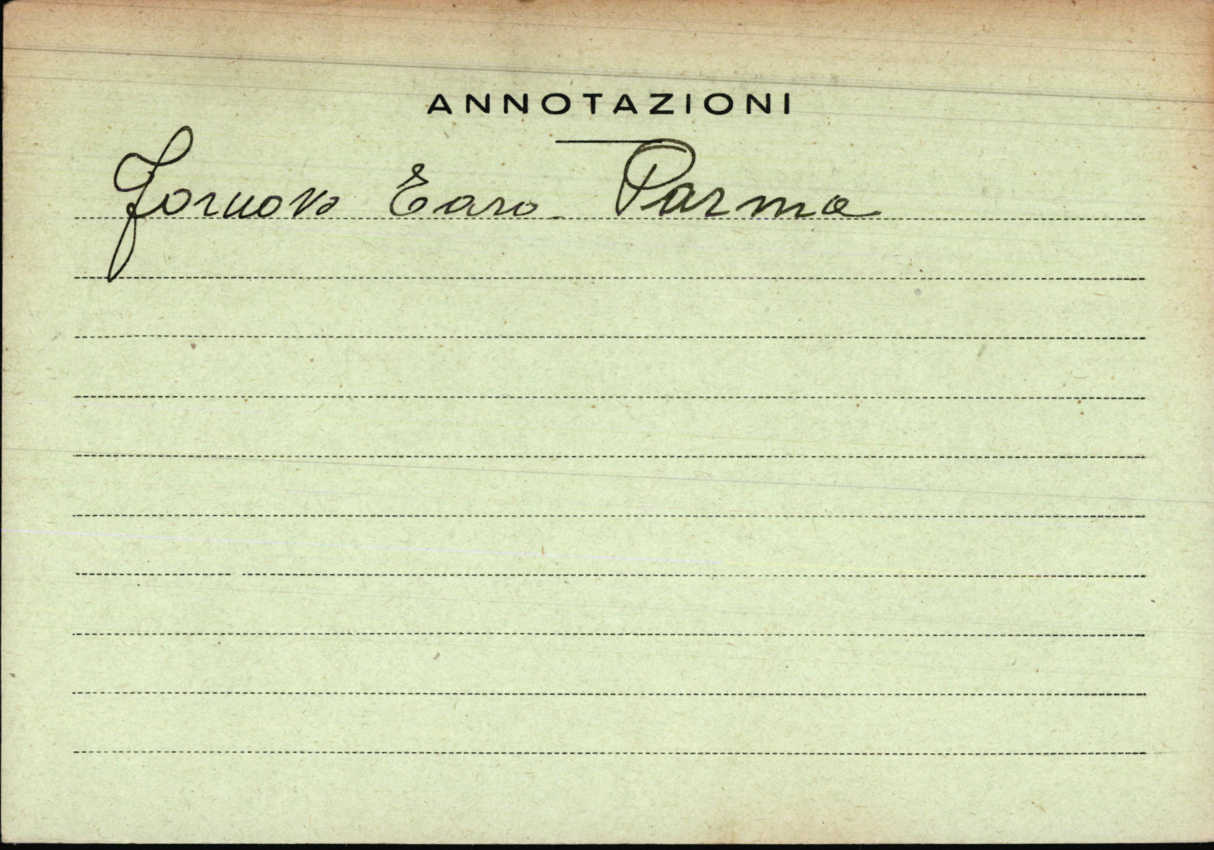 ANNOTAZIONI
Fornovo Taro Parma